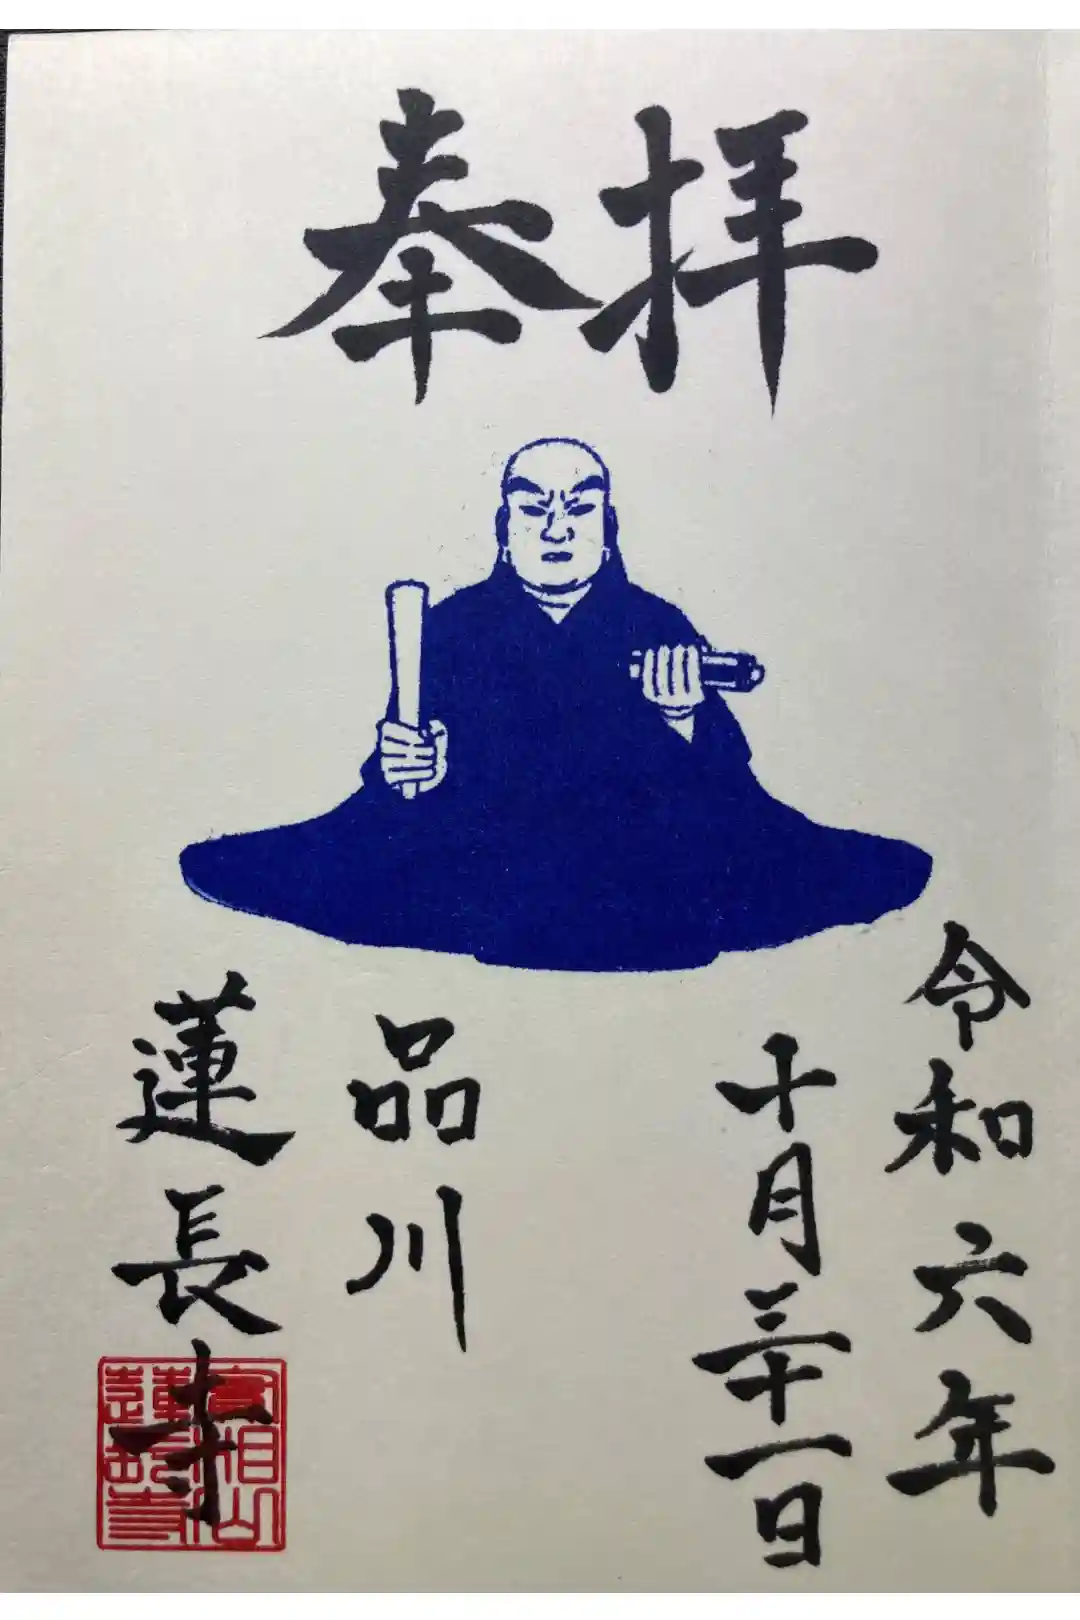 奉拝
令和六年
十月三十一日
品川
蓮長寺